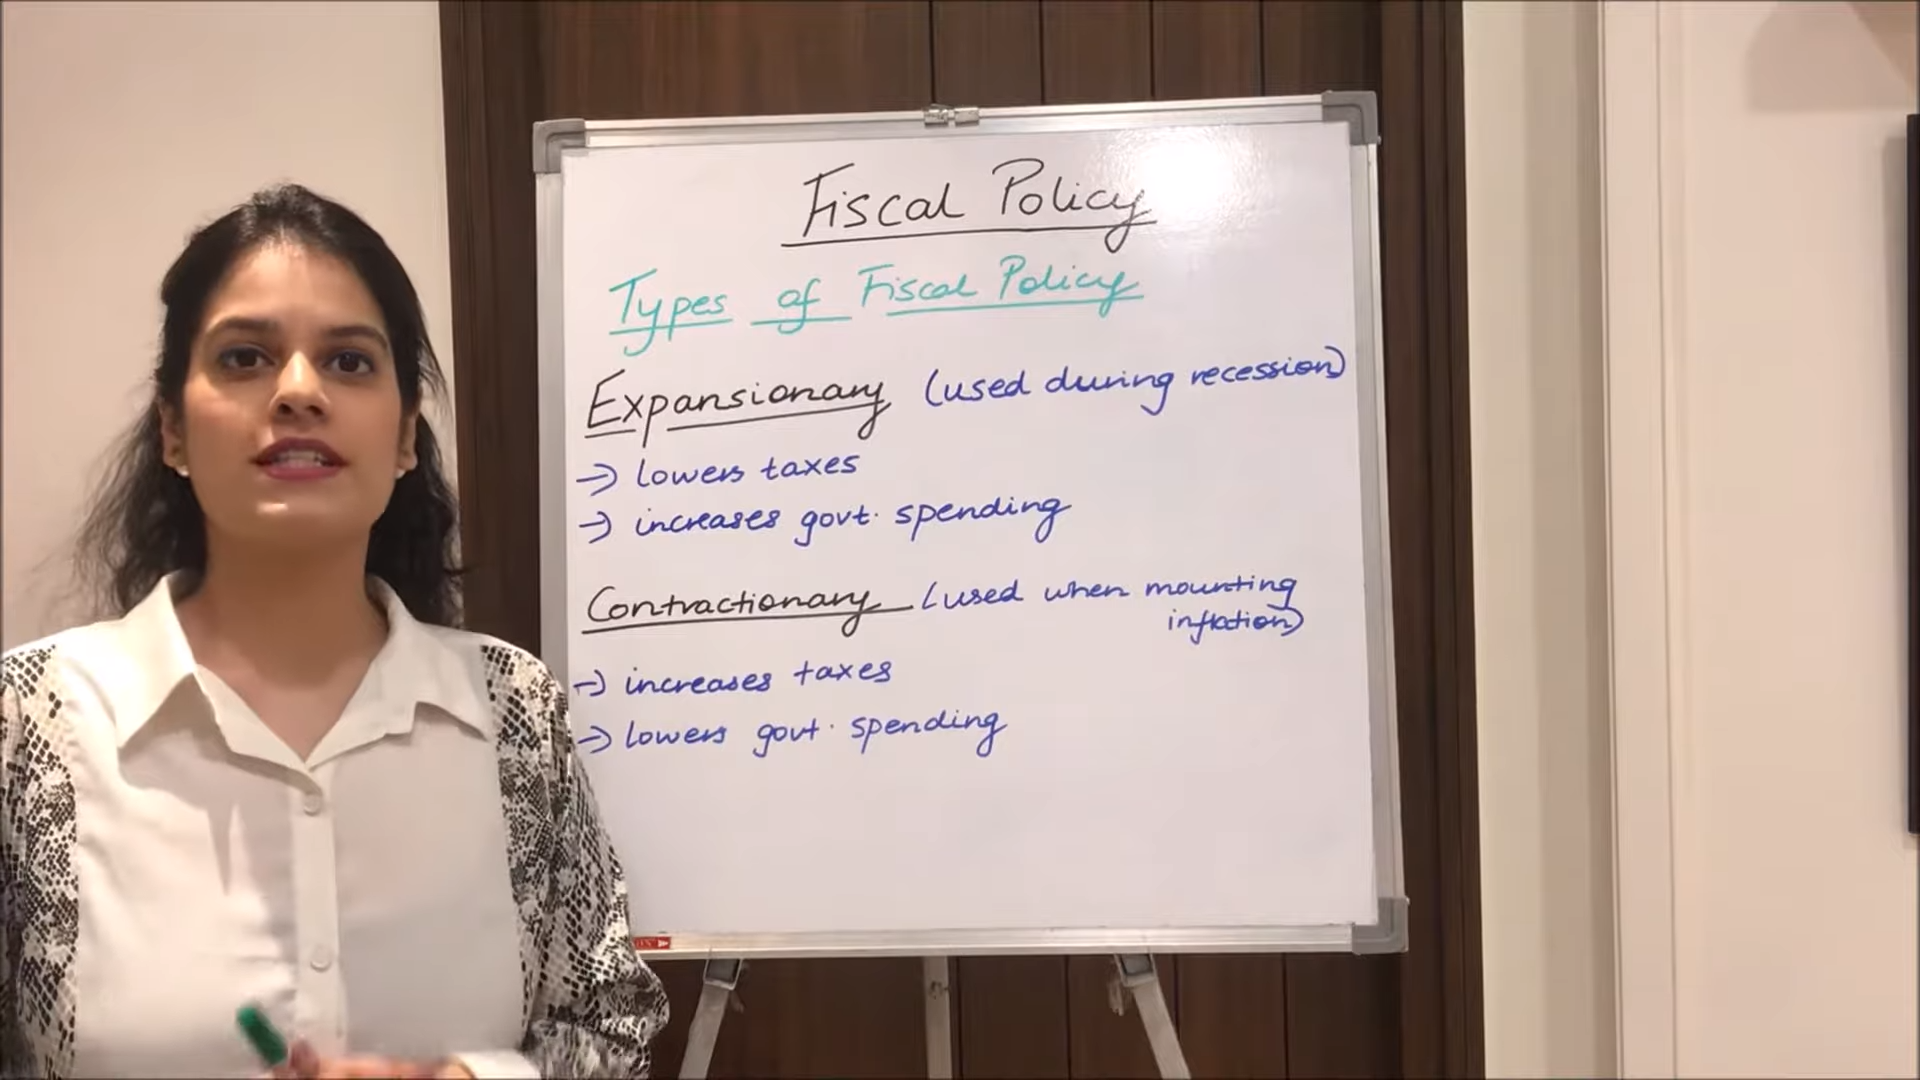 Fiscal Policy
Types of Fiscal Policy
Expansionary (used during recession)
→ lowers taxes
→ increases govt. spending
Contractionary (used when mounting
inflation)
→ increases taxes
→ lowers govt. spending